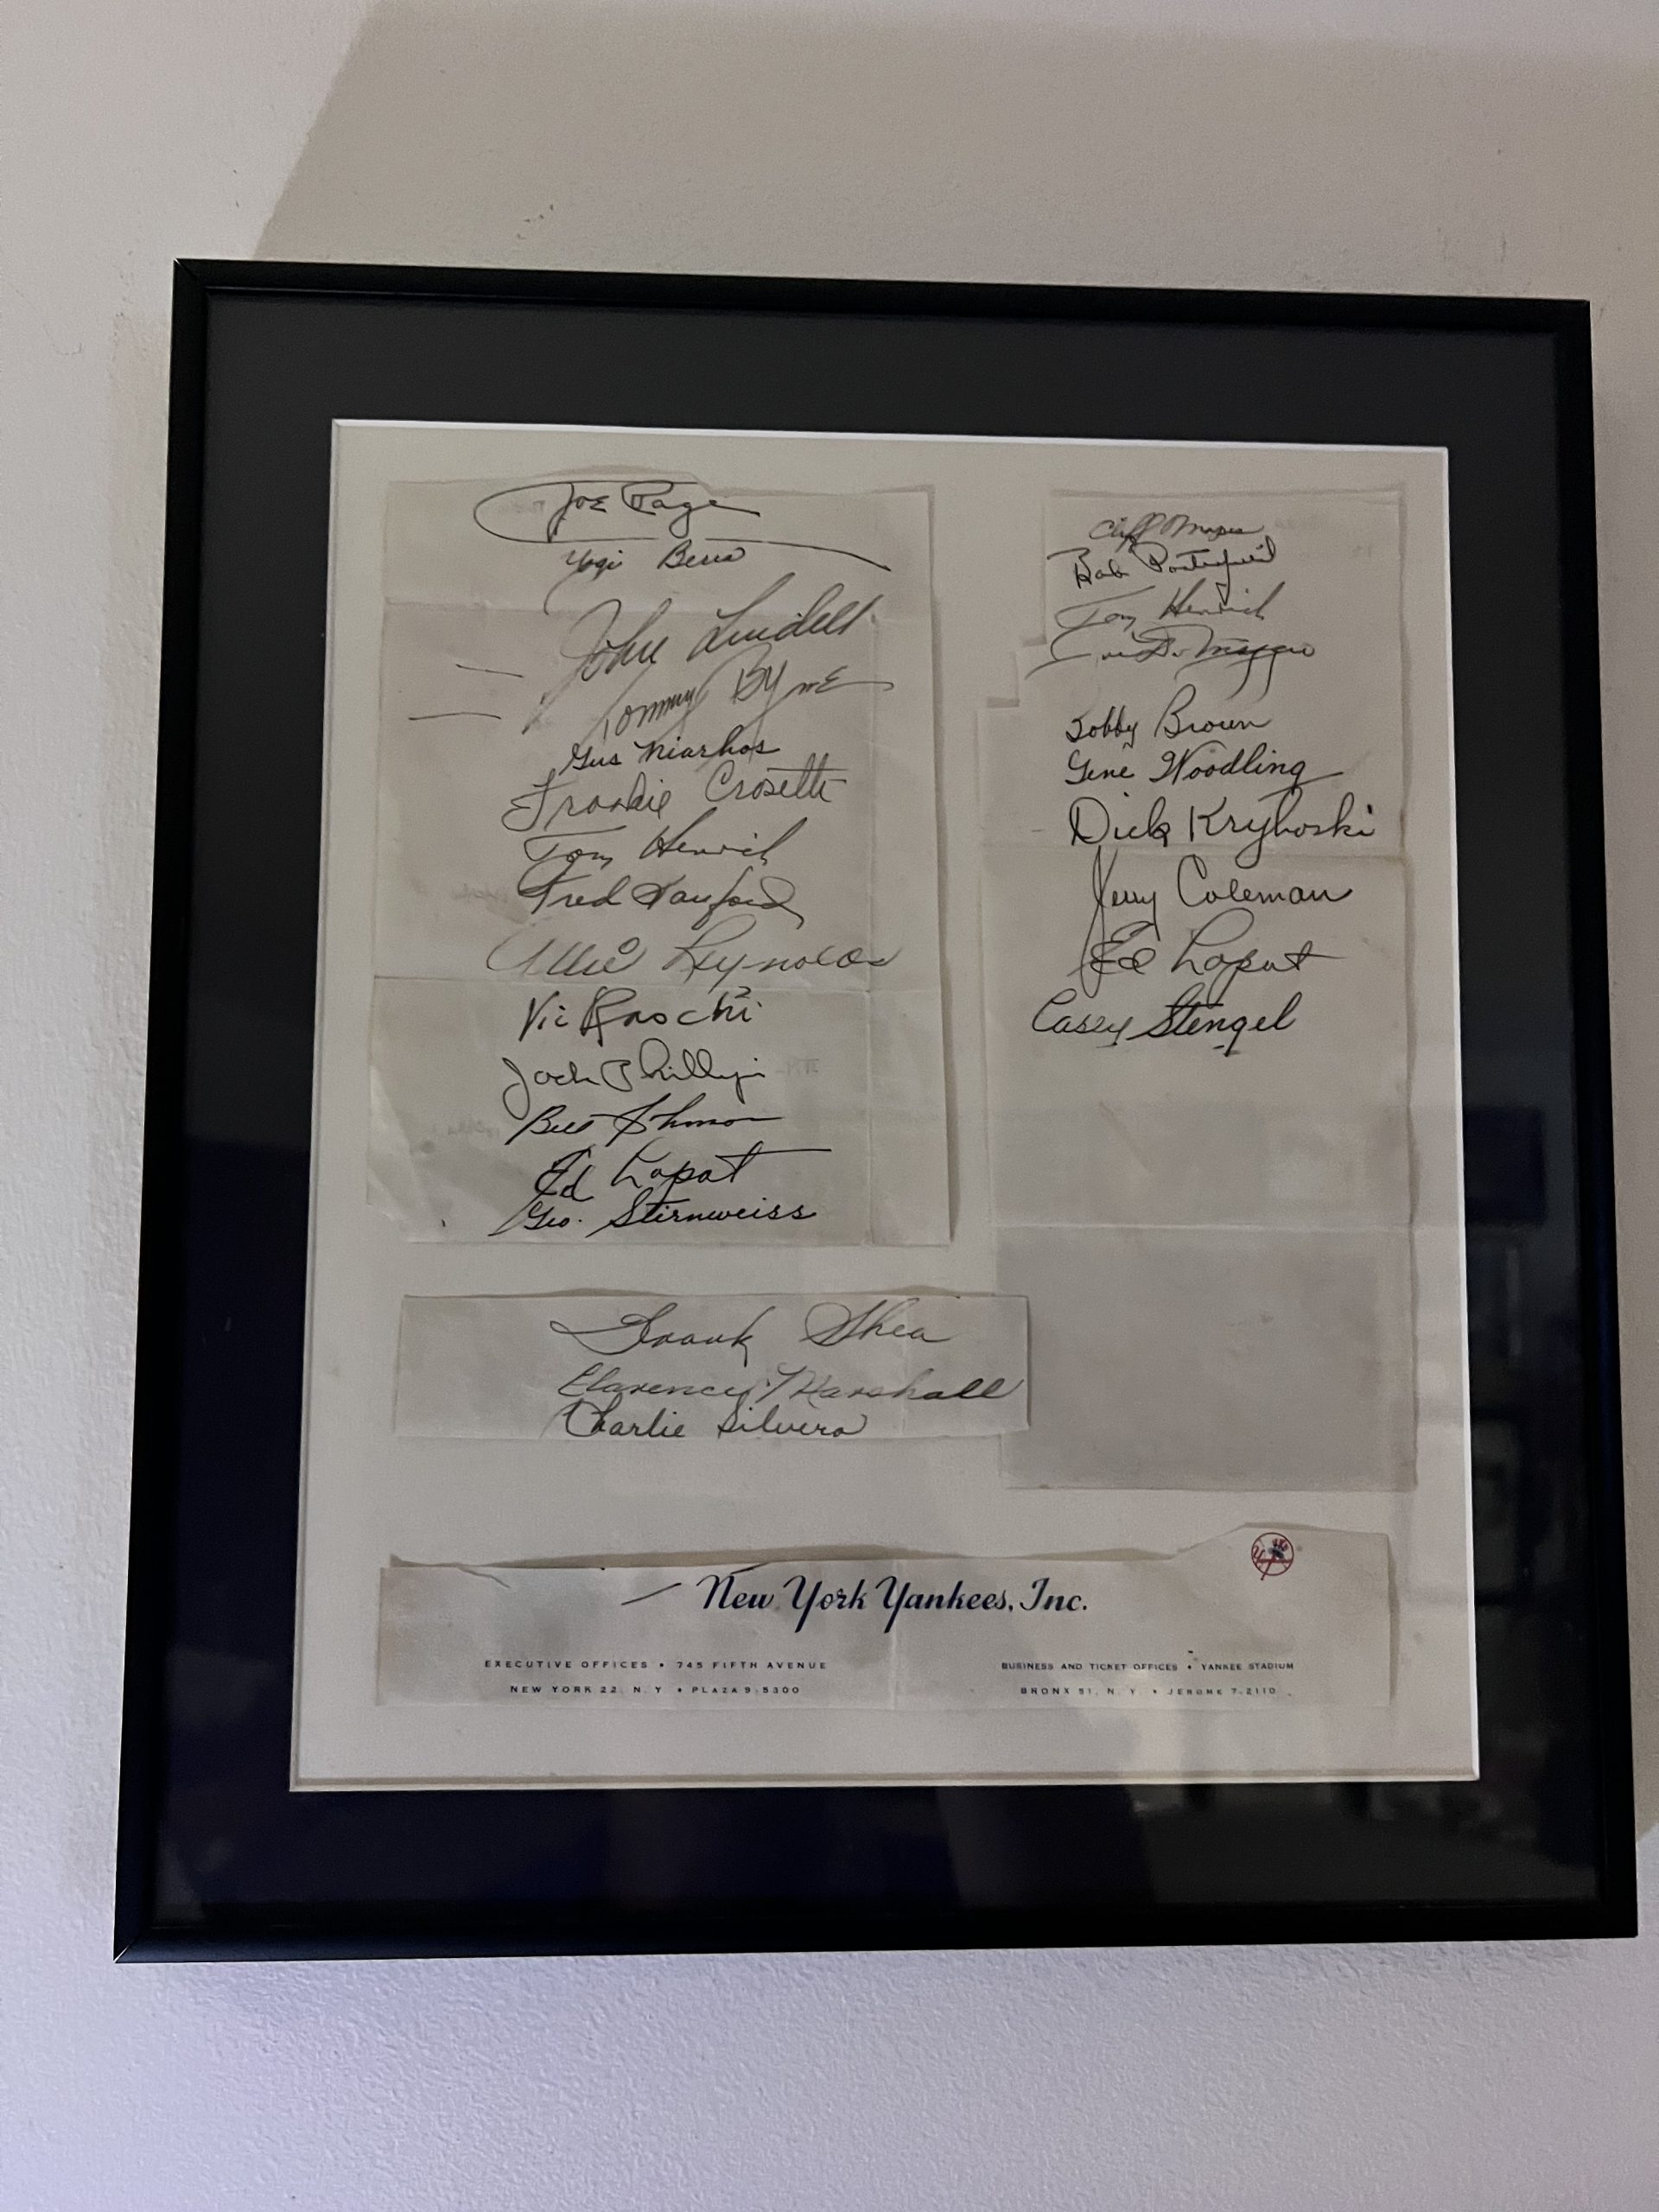 Joe Page
Yogi Berra
John Lindell
Tommy Byrne
Gus Niarhos
Frankie Crosetti
Tom Henrich
Fred Sanford
Allie Reynolds
Vic Raschi
Jack Phillips
Bill Johnson
Ed Lopat
Geo. Stirnweiss
Frank Shea
Clarence Marshall
Charlie Silvera
Cliff Mapes
Bob Porterfield
Tom Henrich
Joe DiMaggio
Bobby Brown
Gene Woodling
Dick Kryhoski
Jerry Coleman
Ed Lopat
Casey Stengel
New York Yankees, Inc.
EXECUTIVE OFFICES • 745 FIFTH AVENUE
NEW YORK 22, N. Y. • PLAZA 9-5300
BUSINESS AND TICKET OFFICES • YANKEE STADIUM
BRONX 51, N. Y. • JEROME 7-2110